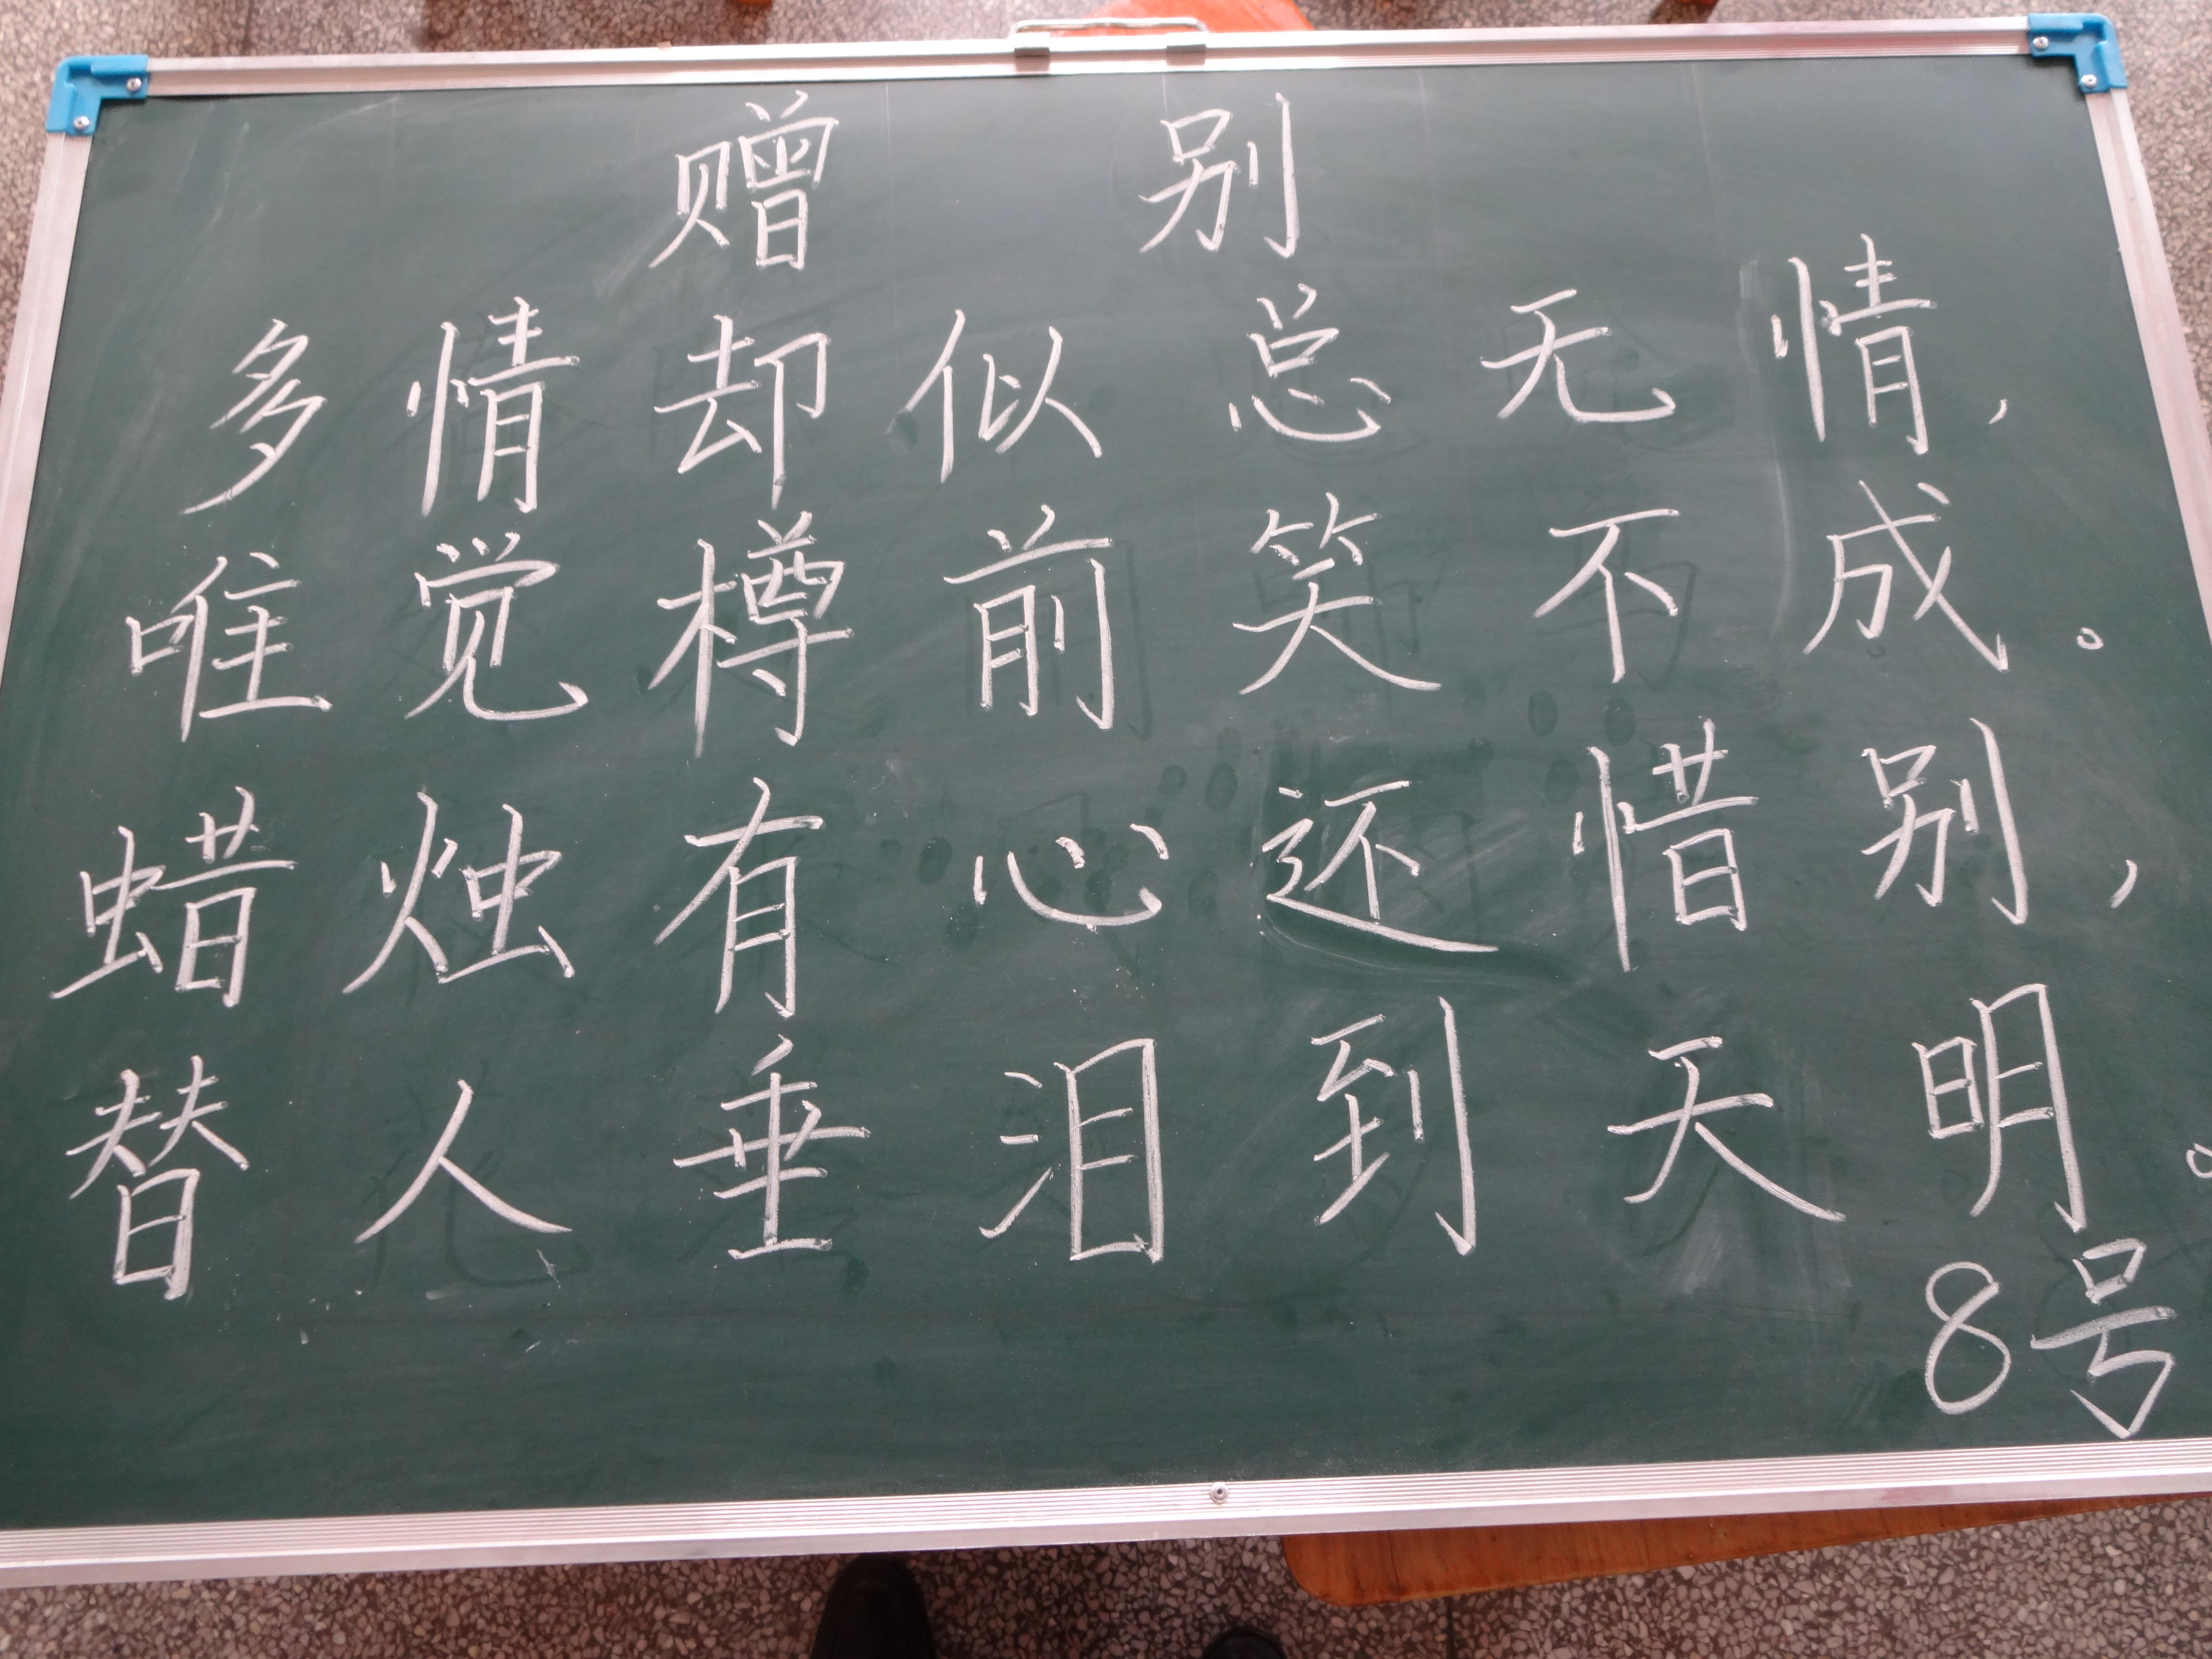 赠别
多情却似总无情，
唯觉樽前笑不成。
蜡烛有心还惜别，
替人垂泪到天明。
8号